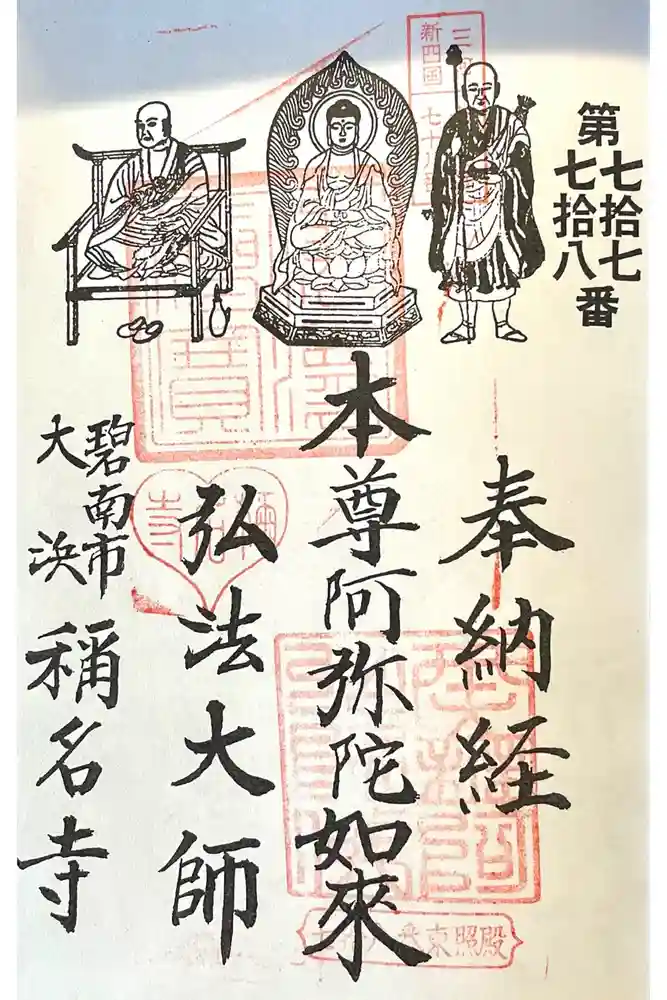 第七拾七
七拾八番
奉納経
本尊阿弥陀如來
弘法大師
碧南市
大浜
稱名寺
新四国
東照殿